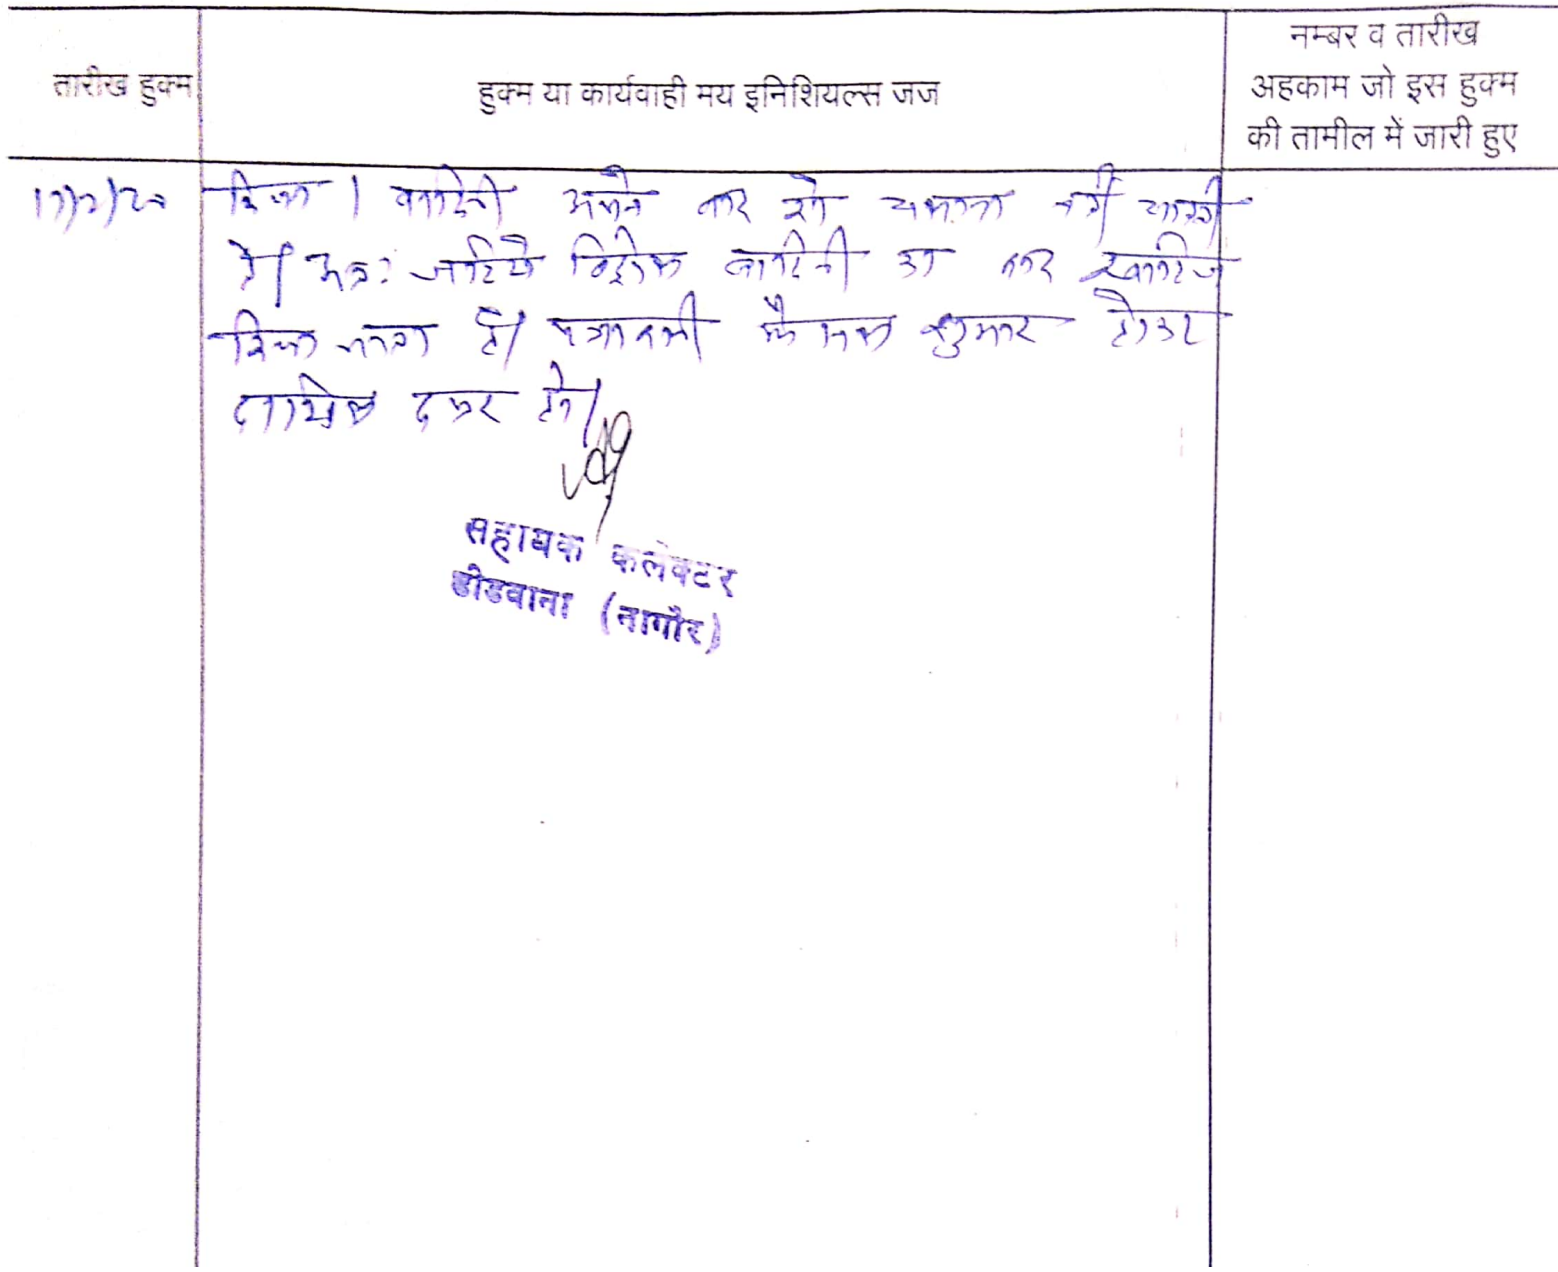 तारीख हुक्म
हुक्म या कार्यवाही मय इनिशियल्स जज
नम्बर व तारीख
अहकाम जो इस हुक्म
की तामील में जारी हुए
किया। वादिनी अपने वाद को चलाना नहीं चाहती
है। अतः जरिये विड्रोल वादिनी का वाद खारिज
किया जाता है। पत्रावली फैसल शुमार होकर
दाखिल दफ्तर हो।
सहायक कलेक्टर
डीडवाना (नागौर)